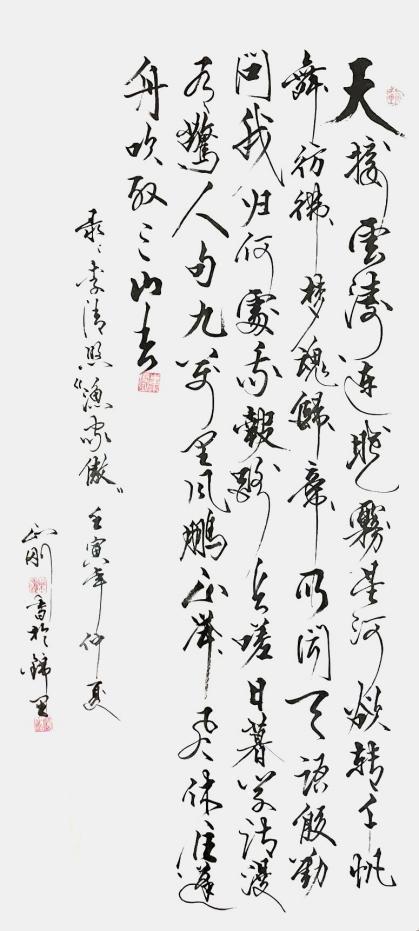 天接雲濤連曉霧星河欲轉千帆
舞彷彿梦魂歸帝所闻天語殷勤
問我归何處我報路長嗟日暮学詩漫
有驚人句九万里风鹏正舉风休住蓬
舟吹取三山去
录李清照“漁家傲”壬寅年仲夏
正刚書於錦里